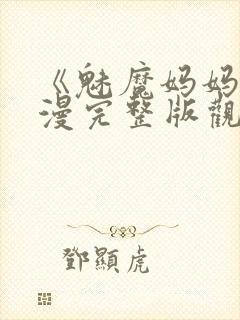 《魅魔妈妈
漫完整版觀
鄧顯虎